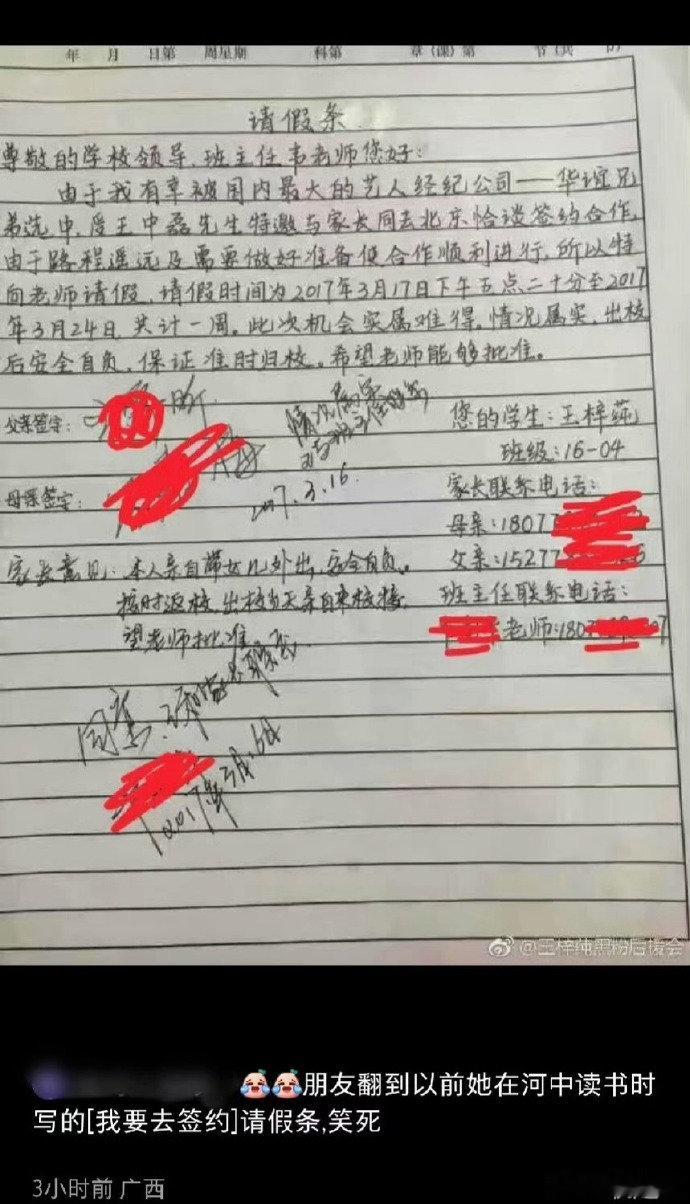 年 月 日第 周星期 科第 章(课)第 节(共 节)
请假条
尊敬的学校领导、班主任韦老师您好:
由于我有幸被国内最大的艺人经纪公司——华谊兄
弟选中,受王中磊先生特邀与家长同去北京恰谈签约合作,
由于路程遥远及需要做好准备使合作顺利进行,所以特
向老师请假,请假时间为2017年3月17日下午五点二十分至2017
年3月24日 共计一周。此次机会实属难得,情况属实,出校
后安全自负,保证准时归校。希望老师能够批准。
父亲签字:
母亲签字:
情况属实
2017.3.16
您的学生:王梓莼
班级:16-04
家长联系电话:
母亲:1807
父亲:15277
班主任联系电话:
老师:180 7
家长意见:本人亲自带女儿外出,安全自负。
按时返校,出校当天亲自来校接,
望老师批准
同意
2017年3月16日
@王梓纯黑粉后援会
😂😂朋友翻到以前她在河中读书时
写的[我要去签约]请假条,笑死
3小时前 广西